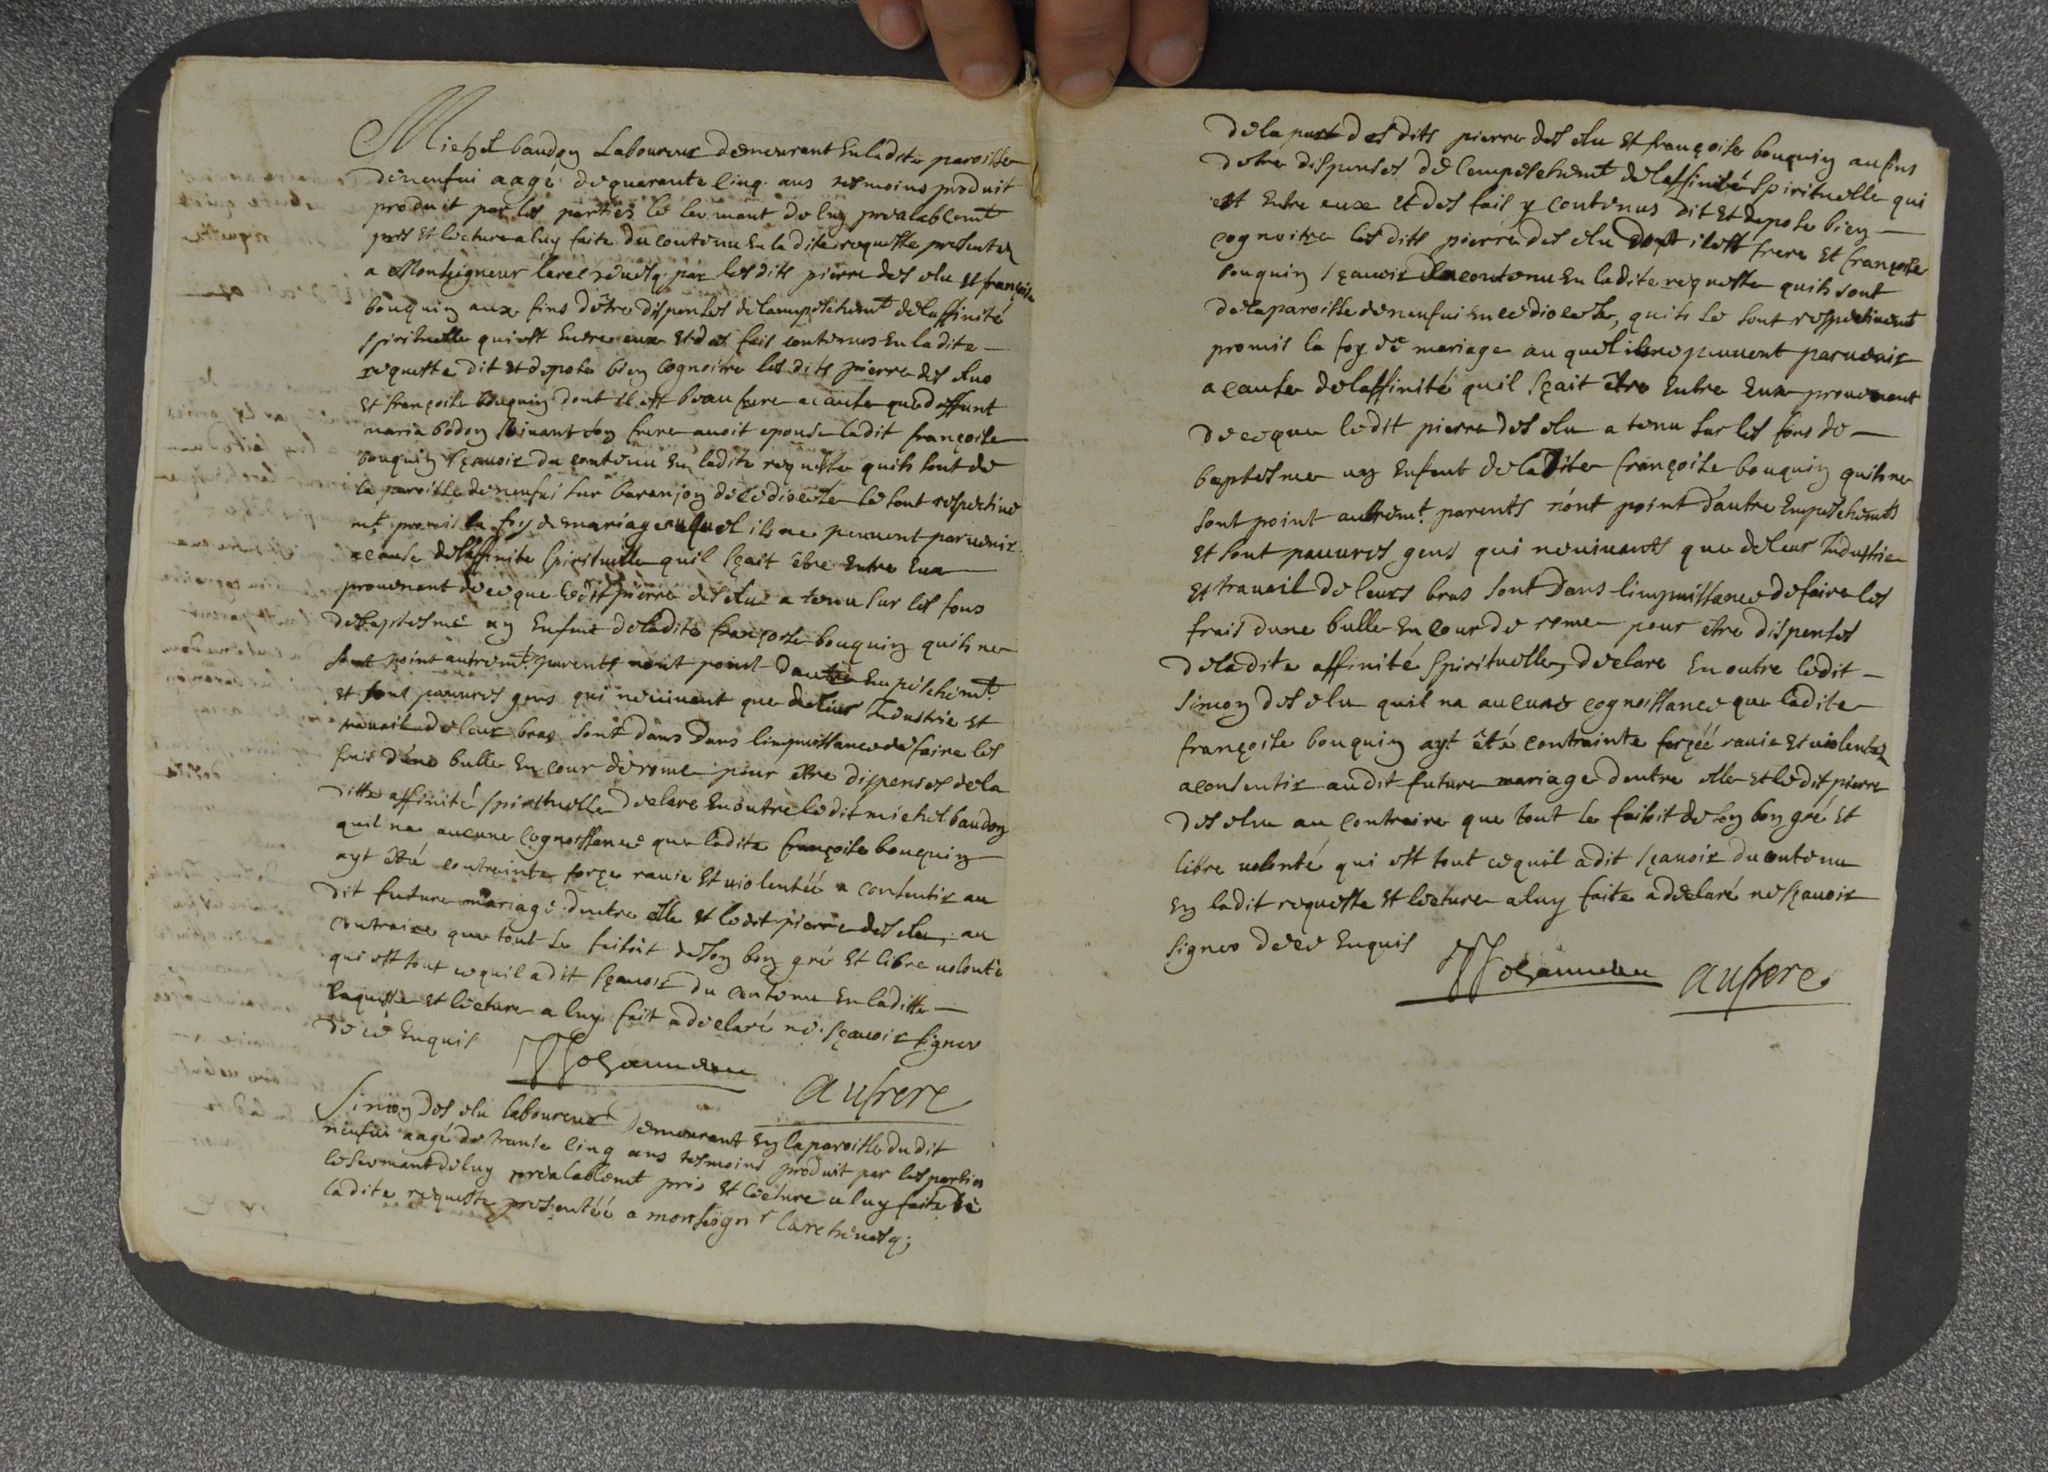 Michel baudon Laboureur demeurant En la dite paroisse
de neufui aagé de quarante cinq ans tesmoins produit
produit par les parties le serment de luy prealablemt
pris et lecture a luy faite du contenu En la dite requeste presentez
a Monseigneur l'archeuesq. par les dits pierre des elu et françoise
bouquin aux fins d'être dispenses de l'ampeschemt de laffinité
spirituelle qui est Entre eux et des fais contenus En la dite
requeste dit et depose bien cognoitre les dits pierre des elus
et françoise bouquin dont il est beau frere a cause que deffunt
maria bodon viuant son frere auoit epousé ladit françoise
bouquin sçauoir du contenu En ladite requeste quils sont de
la paroisse de neufui sur baranjon de ce diocese se sont respectiue
mt promis la foy de mariage auquel ils ne peuuent paruenir
a cause de laffinite spirituelle quil sçait être Entre Eux
prouenant de ce que ledit pierre des elu a tenu sur les fons
de baptesme un Enfant de ladite françoise bouquin quils ne
sont point autremt parents n'ont point d'autre Empéschemt
et sont pauures gens qui ne uiuent que de leur Industrie et
trauail de leur bras sont dans dans l'impuissance de faire les
frais d'une bulle En cour de rome pour être dispenses de la
ditte affinité spirituelle declare En outre ledit michel baudon
quil na aucune cognoissance que ladite françoise bouquin
ayt été contrainte forçe rauie et uiolentéé a consentir au
dit future mariage d'entre elle et ledit pierre des elu, au
contraire que tout se faisoit de son bon gré et libre uolonté
qui est tout ce quil a dit sçauoir du contenu En laditte
Requeste et lecture a luy fait a declaré ne sçauoir signer
de cé Enquis
aufrere
Simon des elu laboureur demeurant En la paroisse du dit
neufui aagé de trante cinq ans tesmoins produit par les parties
le serment de luy prealablemt pris et lecture a luy faite de
ladite requeste presentéé a monseignr larcheuesq;
de la part des dits pierre des elu et françoise bouquin au fins
detre dispenses de l'empeschemt de laffinité spirituelle qui
est Entre eux et des fais y contenus dit et depose bien
cognoitre les dits pierre des elu dont il est frere et françoise
bouquin sçauoir du contenu En ladite requeste quils sont
de la paroisse de neufui En ce diocese, quils se sont respectiuemt
promis la foy de mariage au quel ils ne peuuent paruenir
a cause de laffinité quil sçait être Entre Eux prouenant
de ce que ledit pierre des elu a tenu sur les fons de
baptesme un Enfant de la dite françoise bouquin quils ne
sont point autremt. parents n'ont point d'autre Empeschemts
et sont pauures gens qui ne uiuents que de leur Industrie
et trauail de leurs bras sont dans limpuissance de faire les
frais dune bulle En cour de rome pour être dispenses
de ladite affinité spirituelle, declare En outre ledit
simon des elu quil na aucune cognoissance que ladite
françoise bouquin ayt été contrainte forçéé rauie et uiolentez
a consentir audit future mariage dentre elle et ledit pierre
des elu au contraire que tout se faisoit de son bon gré et
libre uolonté qui est tout ce quil a dit sçauoir du contenu
En ladit requeste et lecture a luy faite a declaré ne sçauoir
signer de ce Enquis
aufrere